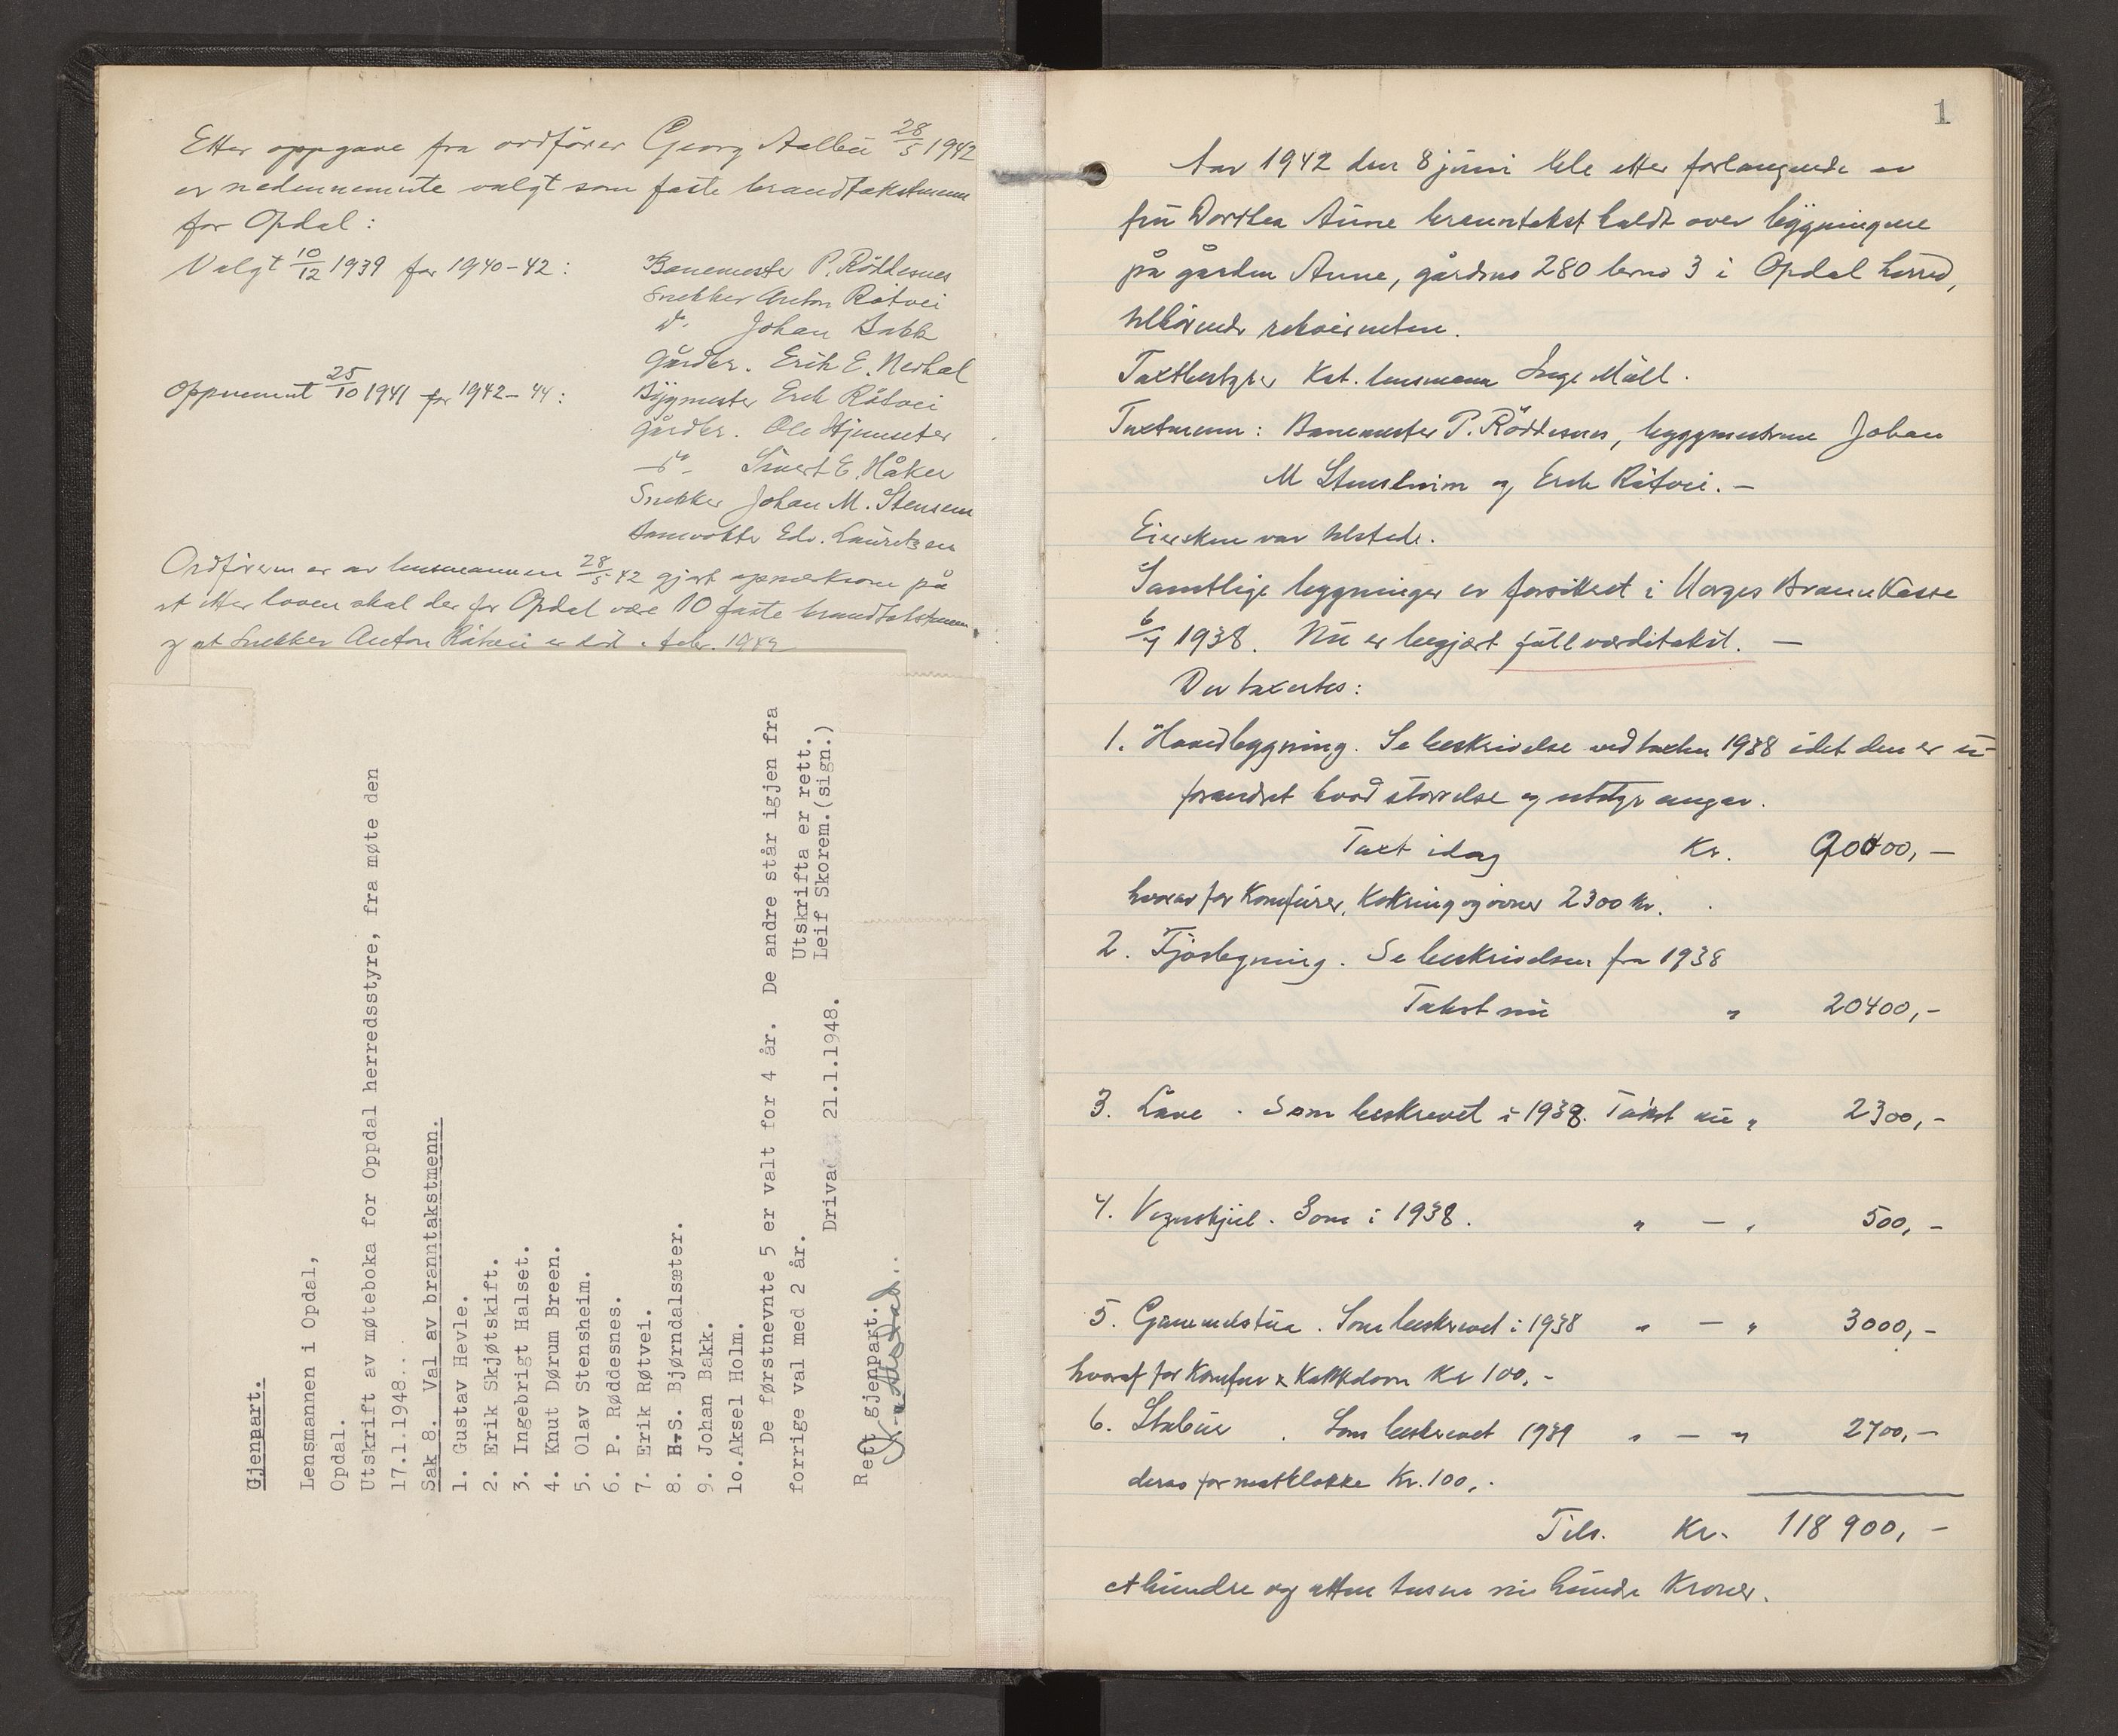 Etter oppgave fra ordfører Georg Aalbu 28/5 1942
er nedennemnte valgt som faste brandtakstmenn
for Opdal:
Valgt 10/12 1939 for 1940-42: Banemester P. Röddesnes
Snekker Anton Rötvei
do. Johan Bakk
Gårdbr. Erik E. Nerhal
Oppnemnt 25/10 1941 for 1942-44: Byggmester Erik Rötvei
Gårdbr. Ole Stjernseter
-d- Sivert E. Håker
Snekker Johan M. Stensem
Banevokter Edv. Lauritzen
Ordføreren er av lensmannen 28/5 42 gjort opmerksom på
at etter loven skal der for Opdal være 10 faste brandtakstmenn,
og at Snekker Anton Rötvei er död i febr. 1942
Gjenpart.
Lensmannen i Opdal,
Opdal.
Utskrift av møteboka for Oppdal herredsstyre, fra møte den
17.1.1948..
Sak 8. Val av branntakstmenn.
1. Gustav Hevle.
2. Erik Skjøtskift.
3. Ingebrigt Halset.
4. Knut Dørum Breen.
5. Olav Stensheim.
6. P. Røddesnes.
7. Erik Røtvei.
8. H.S. Bjørndalsæter.
9. Johan Bakk.
10. Aksel Holm.
De førstnevnte 5 er valt for 4 år. De andre står igjen fra
forrige val med 2 år. Utskrifta er rett.
Driva 21.1.1948. Leif Skorem.(sign.)
Rett gjenpart.
1
Aar 1942 den 8 juni ble etter forlangende av
fru Dorthea Aune branntakst holdt over bygningene
på gården Aune, gårdsno 280 brno 3 i Opdal herred,
tilhørende rekvirenten.
Taxtbestyrer Kst. lensmann Inge Mäll.
Taxtmenn: Banemester P. Röddesnes, byggmestrene Johan
M Stensheim og Erik Rötvei. —
Eiersken var tilstede.
Samtlige bygninger er forsikret i Norges BrannKasse
6/7 1938. Nu er begjært full værditakst. —
Der taxertes:
1. Hovedbygning. Se beskrivelse ved taxten 1938 idet den er u-
forandret hvad størrelse og utstyr angår.
Taxt idag Kr. 90000,—
hvorav for Komfurer, Kokning og ovner 2300 kr.
2. Fjøsbygning. Se beskrivelsen fra 1938
Takst nu " 20400,-
3. Låve. Som beskrevet i 1938. Takst nu " 2300,-
4. Vognskjul. Som i 1938. " — " 500,-
5. Gammelstua. Som beskrevet i 1938 " — " 3000,-
hvoraf for Komfur & Kakkelovn Kr 100,-
6. Stabur. Som beskrevet 1939 " — " 2700,-
derav for matklokke Kr. 100,-
Tils. Kr. 118900,-
et hundre og atten tusen ni hundre Kroner.